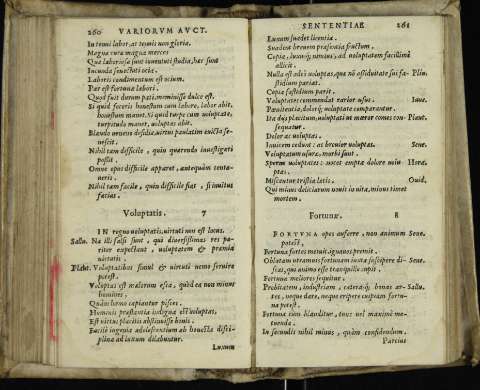 260 VARIORVM AVCT.
In tenui labor, at tenuis non gloria.
Magna cura magna merces
Que laboriosa sunt iuuentuti studia, hæc sunt
Iucunda senectuti ocia.
Laboris condimentum est ocium.
Par est fortuna labori.
Quod fuit durum pati, meminisse dulce est.
Si quid feceris honestum cum labore, labor abit,
honestum manet. Si quid turpe cum voluptate,
turpitudo manet, voluptas abit.
Blando oriens desidia, uirtus paulatim euicta senescit.
Nihil tam difficile, quin quærendo inuestigari
possit.
Omne opus difficile apparet, antequàm tentaueris.
Nihil tam facile, quin difficile fiat, si inuitus
facias.
Voluptatis. 7
IN regno uoluptatis, uirtuti non est locus.
Sallu. Na illi falsi sunt, qui diuersissimas res pariter
expectant, uoluptatem & præmia
uirtutis.
Plaut. Voluptatibus simul & uirtuti nemo seruire
potest.
Voluptas est malorum esca, quòd ea non minus
homines,
Quàm hamo capiantur pisces.
Hominis præstantia indigna est uoluptas,
Est virtus placitis abstinuisse bonis.
Facile ingenia adolescentium ab honesta disciplina
ad luxum dilabuntur.
Luxum
SENTENTIAE 261
Luxum suadet licentia.
Suadent bruuem præsentia fructum.
Copia, luxuriæ nimiæ, ad voluptatem facillimè
allicit.
Nulla est adeò voluptas, quæ nō assiduitate sui fastidium pariat. Plin.
Copia fastidium parit.
Voluptates commendat rarior usus. Iuue.
Pœnitentia, dolorq; uoluptate comparantur.
Ita dijs placitum, uoluptati ut mœror comes consequatur. Plaut.
Dolor ac uoluptas.
Inuicem cedunt: at breuior uoluptas. Sene.
Voluptatum usura, morbi sunt.
Sperne uoluptates: nocet empta dolore voluptas. Horat.
Miscentur tristia lætis. Ouid.
Qui minus deliciarum nouit in uita, minus timet
mortem.
Fortunæ. 8
FORTVNA opes auferre, non animum
potest. Sene.
Fortuna fortes metuit, ignauos premit.
Oblatam utramus fortunam iuxta suscipere discas,
quo animo esse tranquillo cupis.
Fortuna meliores sequitur.
Probitatem, industriam, cæterasq; bonas artes,
neque dare, neque eripere cuipiam fortuna
potest. Sallu.
Fortuna cum blanditur, tunc uel maximè metuenda.
In secundis nihil nimis, quàm confidendum.
Parcius